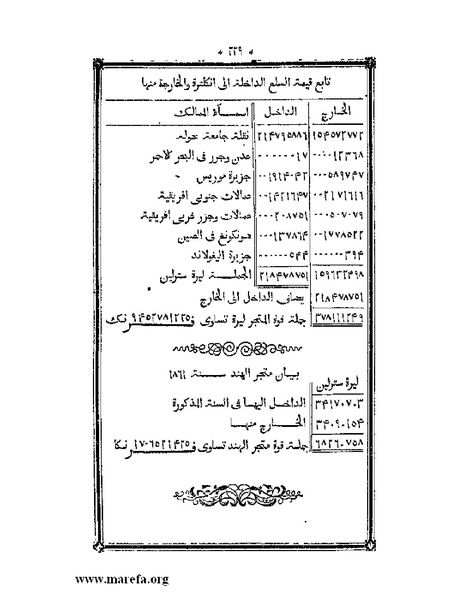 * ٢٢٩ *
تابع قيمة السلع الداخلة الى انكلترة والخارجة منها
الخارج الداخل اسمآء الممالك
١٥٤٥٧٢٧٧٢ ٢١٤٧٩٥٨٨٦ نقلة جامعة حوله
٠٠٠٠١٢٣٦٨ ٠٠٠٠٠٠٠١٧ عدن وجزر فى البحر الاحمر
٠٠٠٥٨٩٧٤٧ ٠٠١٩١٤٠٤٢ جزيرة موريس
٠٠٢١٧١٦١٦ ٠٠١٤٢١٦٤٧ صالات جنوبى افريقية
٠٠٠٥٠٧٠٧٩ ٠٠٠٢٠٨٧٥١ صالات وجزر غربى افريقية
٠٠١٧٧٨٥٢٢ ٠٠٠١٣٧٨٦٤ هونكونغ فى الصين
٠٠٠٠٠٠٣٩٤ ٠٠٠٠٠٠٥٤٤ جزيرة اليغولاند
١٥٩٦٣٢٤٩٨ ٢١٨٤٧٨٧٥١ الجملة ليرة سترلين
٢١٨٤٧٨٧٥١ يضاف الداخل الى الخارج
٣٧٨١١١٢٤٩ جملة قوة المتجر ليرة تساوى ٩٤٥٢٧٨١٢٢٥ فرنك
بيان متجر الهند سنة ١٨٦١
ليرة سترلين
٣٤١٧٠٧٠٣ الداخل اليها فى السنة المذكورة
٣٤٠٩٠١٥٤ الخارج منها
٦٨٢٦٠٧٥٨ جملة قوة متجر الهند تساوى ١٧٠٦٥٢١٤٢٥ فرنكا
www.marefa.org